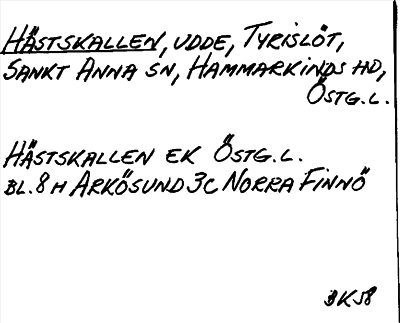 HÄSTSKALLEN, UDDE, TYRISLÖT,
SANKT ANNA SN, HAMMARKINDS HD,
ÖSTG.L.
HÄSTSKALLEN EK ÖSTG.L.
BL. 8H ARKÖSUND 3C NORRA FINNÖ
BK58